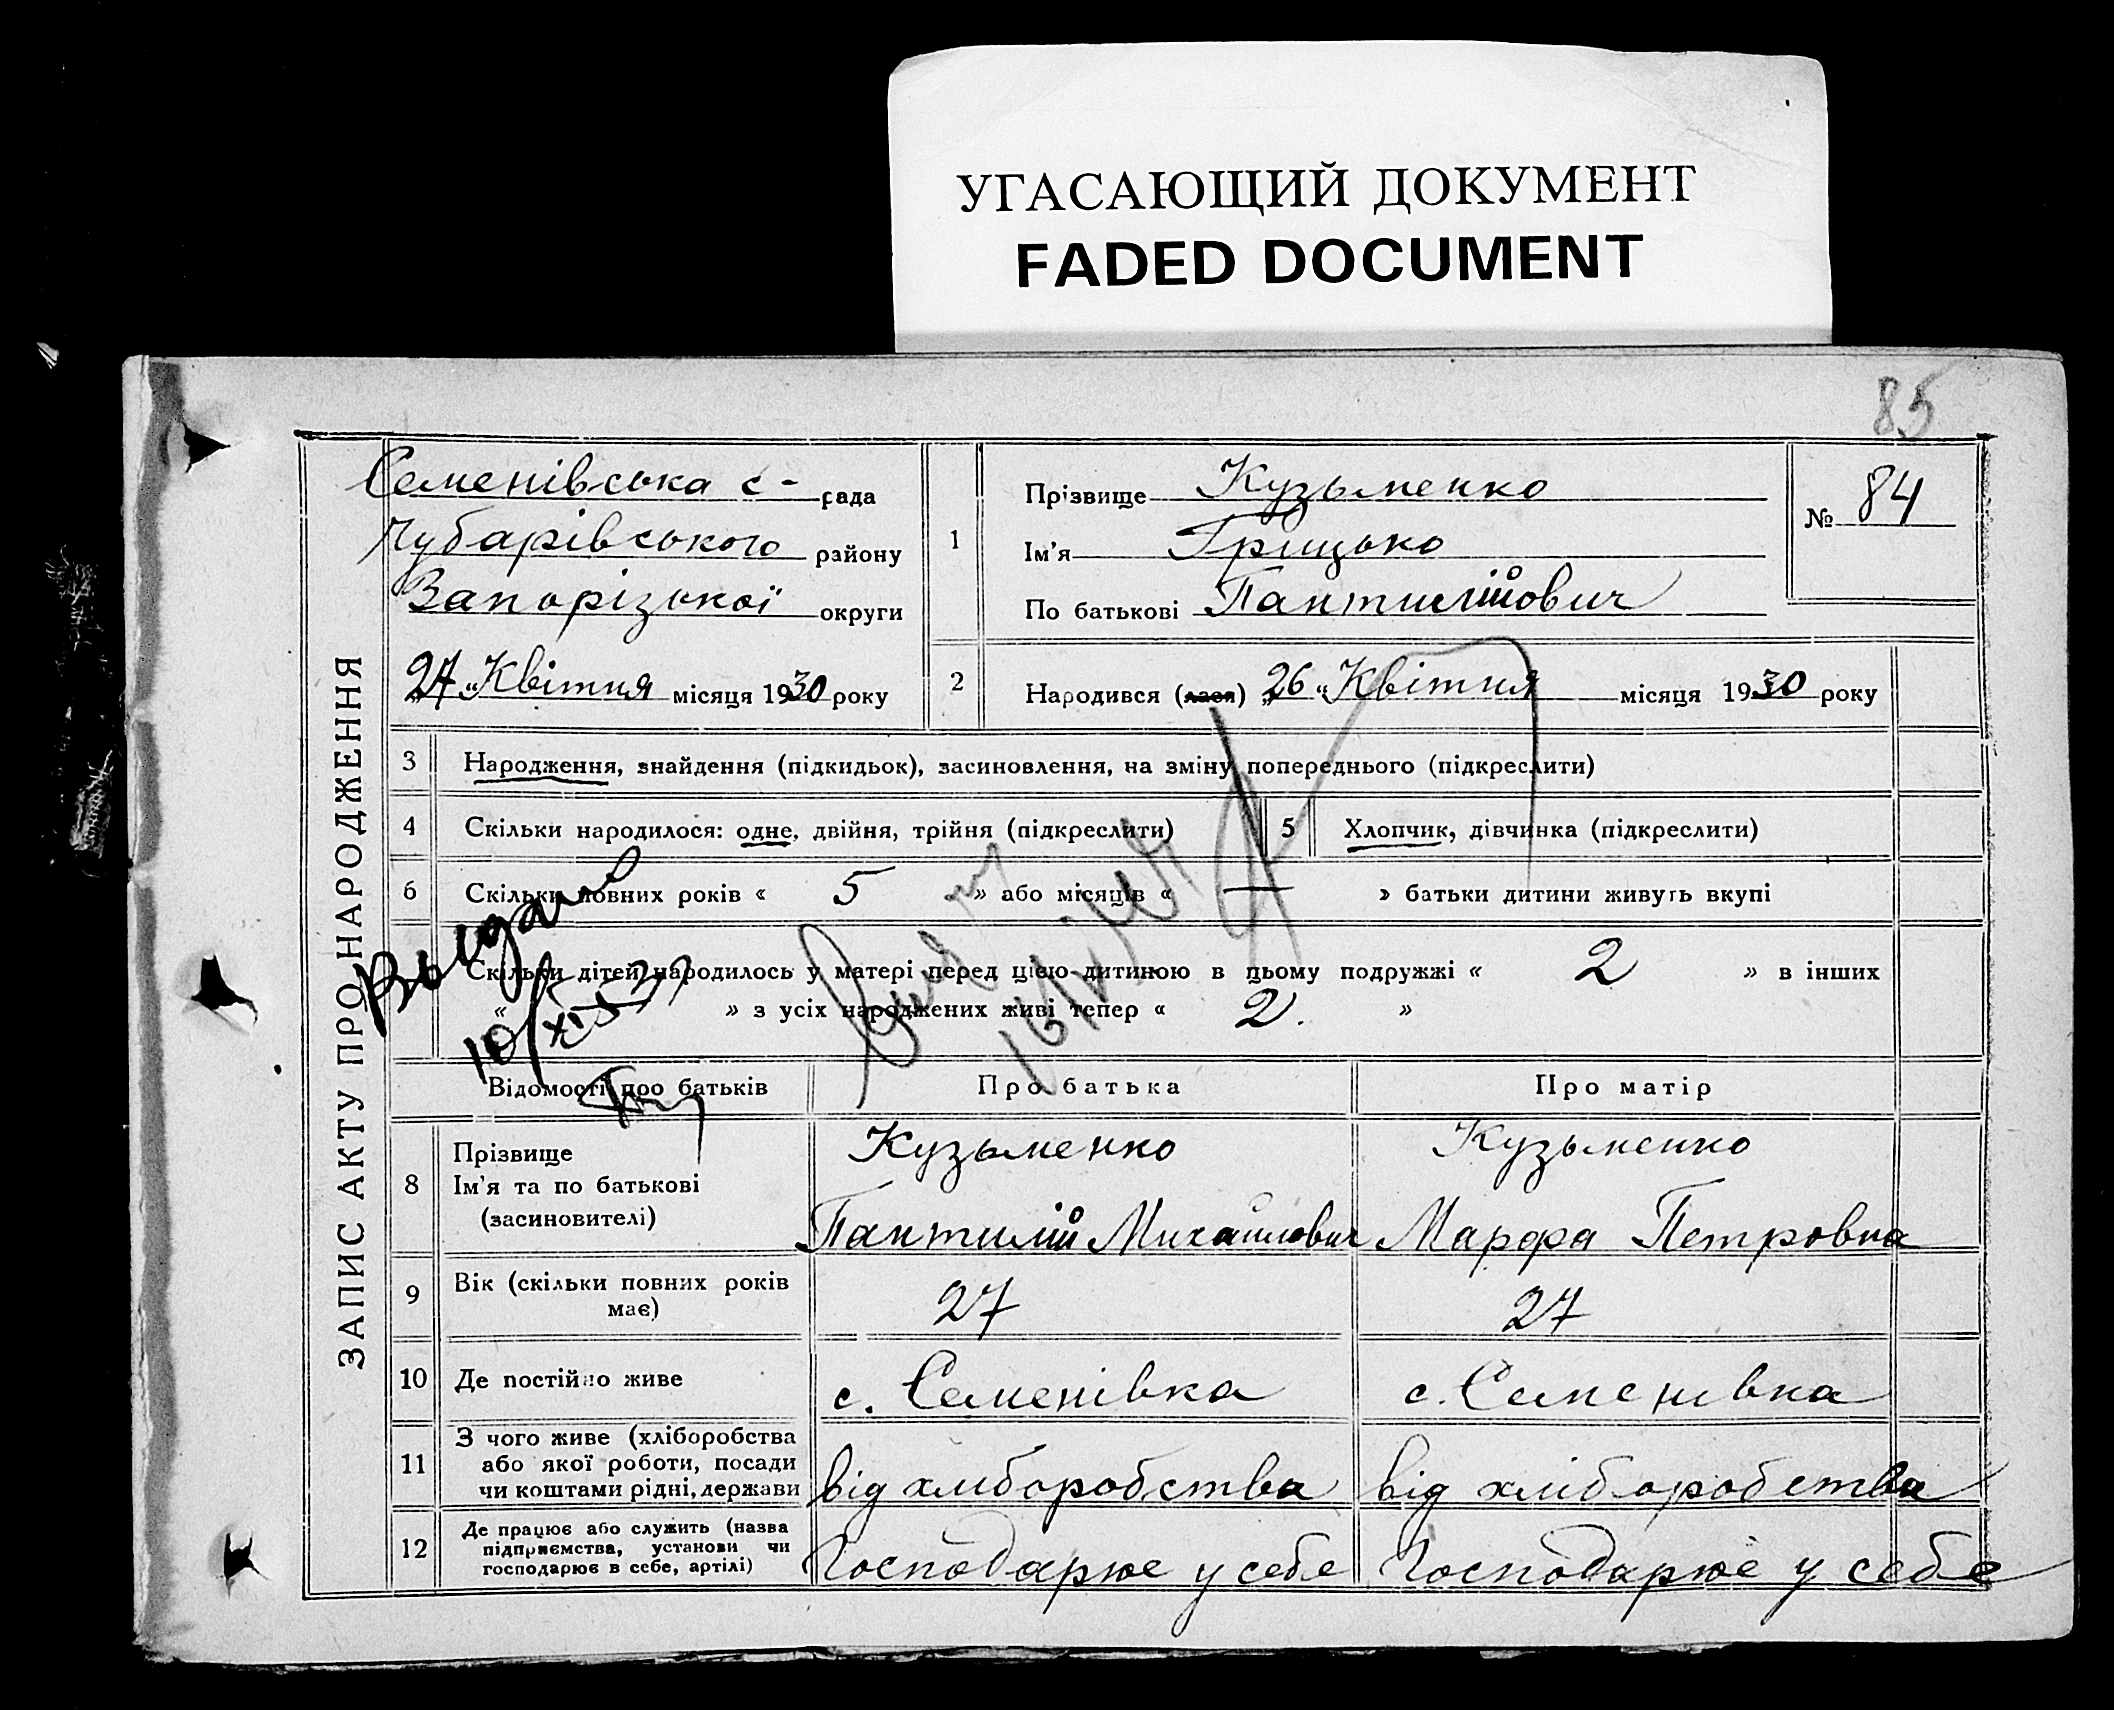 УГАСАЮЩИЙ ДОКУМЕНТ
FADED DOCUMENT
85
ЗАПИС АКТУ ПРО НАРОДЖЕННЯ
Семенівська с - рада
Чубарівського району
Запорізької округи
„27 “ Квітня місяця 1930 року
1
Прізвище Кузьменко
Ім'я Грицько
По батькові Пантилійович
№ 84
2 Народився (лася) „26 “ Квітня місяця 1930 року
3 Народження, знайдення (підкидьок), засиновлення, на зміну попереднього (підкреслити)
4 Скільки народилося: одне, двійня, трійня (підкреслити) 5 Хлопчик, дівчинка (підкреслити)
6 Скільки повних років « 5 » або місяців « — » батьки дитини живуть вкупі
Скільки дітей народилось у матері перед цією дитиною в цьому подружжі « 2 » в інших
« » з усіх народжених живі тепер « 2. »
Выдано
10/XI
Відомості про батьків Про батька Про матір
8 Прізвище Кузьменко Кузьменко
Ім'я та по батькові
(засиновителі) Пантилій Михайлович Марфа Петровна
9 Вік (скільки повних років має) 27 27
10 Де постійно живе с. Семенівка с. Семенівка
11 З чого живе (хліборобства
або якої роботи, посади
чи коштами рідні, держави від хліборобства від хліборобства
12 Де працює або служить (назва
підприємства, установи чи
господарює в себе, артілі) Господарює у себе Господарює у себе